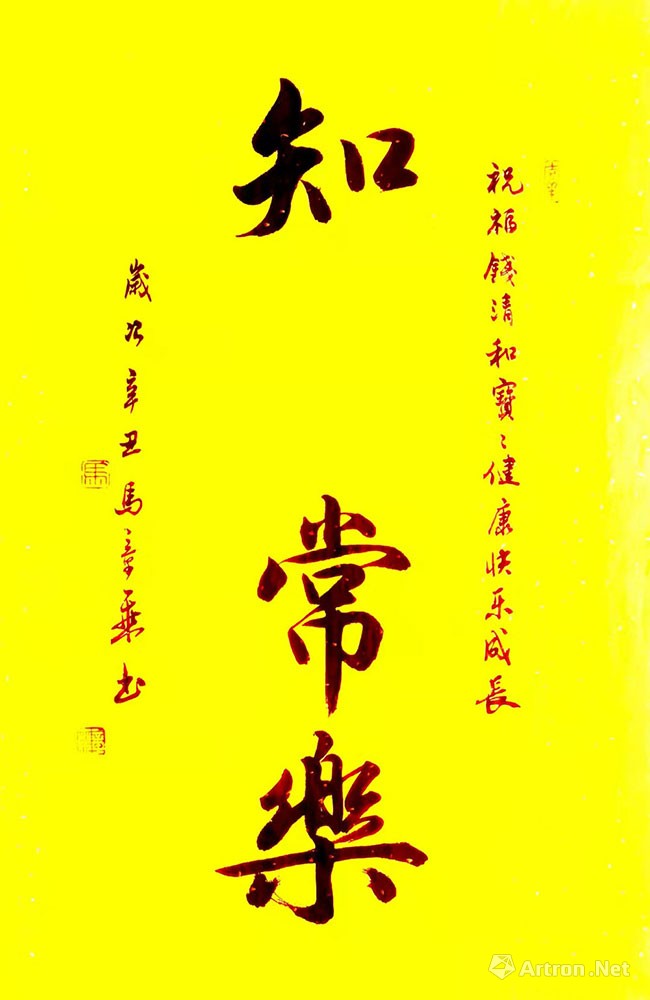 祝福錢清和寶々健康快乐成長
知常樂
歲次辛丑馬章乘书
Artron.Net